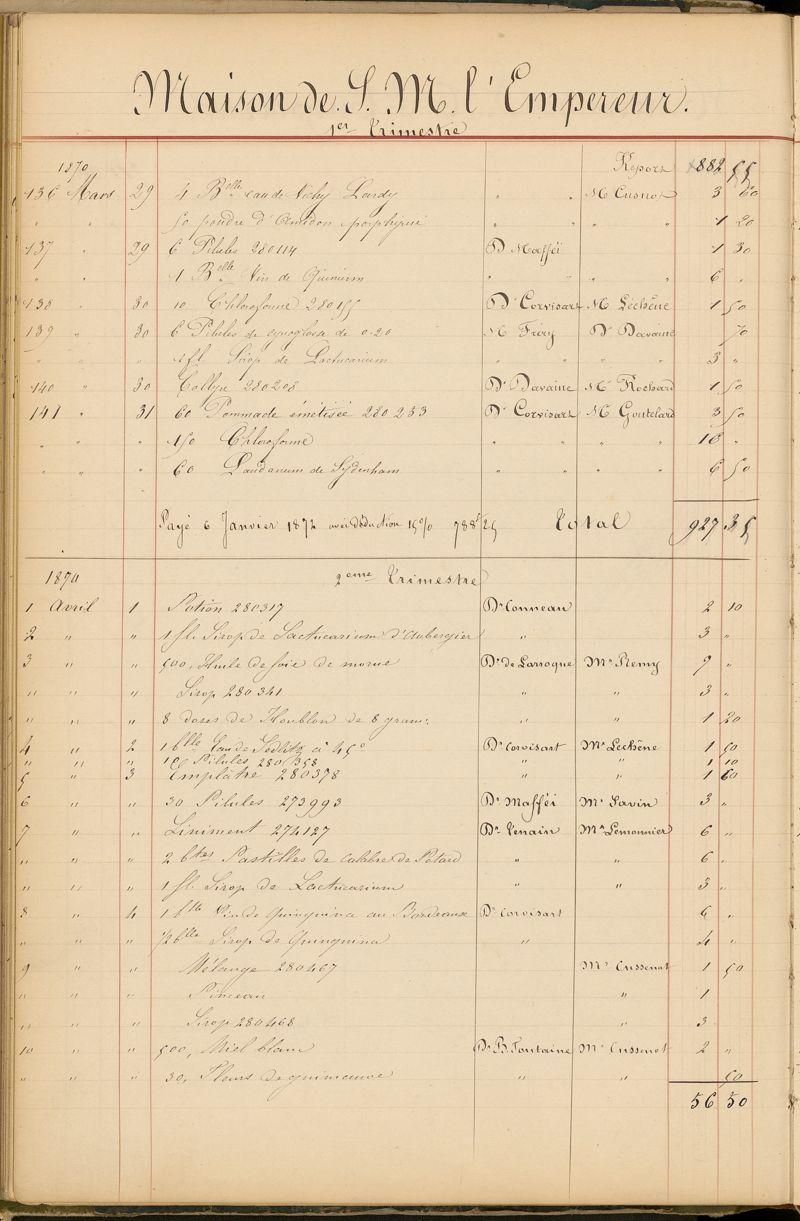 Maison de S. M. l'Empereur.
1er Trimestre
1870 Report 882 55
136 Mars 29 4 Blle eau de Vichy Lardy " " M Cusnot 3 60
" " 50 poudre d'Amidon porphyrisé " " " " 1 20
137 " 29 6 Pilules 280114 Dr Mafféi 1 30
" " 1 Blle Vin de Quinium " " " " 6 "
138 " 30 10 Chloroforme 280155 Dr Corvisart M Léchêne 1 50
139 " 30 6 Pilules de cynoglosse de 0.20 M Fréry Dr Davaine 70
" " " 1 fl. Sirop de Lactucarium " " " " 3 "
140 " 30 Collyre 280208 Dr Davaine Mr Rochard 1 50
141 " 31 60 Pommade émétisée 280233 Dr Corvisart M Goutelard 3 50
" " " 150 Chloroforme " " " " 18 "
" " " 60 Laudanum de Sydenham " " " " 6 50
Payé 6 Janvier 1872 avec Déduction 15% 788f25 Total 927 35
1870 2eme Trimestre
1 Avril 1 Potion 280317 Dr Conneau 2 10
2 " " 1 fl. Sirop de Lactucarium d'Aubergier " 3 "
3 " " 500, Huile de foie de morue Dr de Larroque Mr Remy 9 "
" " " Sirop 280341 " " 3 "
" " " 8 doses de Houblon de 8 gram: " " 1 20
4 " 2 1 blle Eau de Sedlitz à 45° Dr Corvisart Mr Léchêne 1 50
" " " 10 Pilules 280358 " " 1 10
5 " 3 Emplâtre 280378 " " 1 60
6 " " 30 Pilules 273993 Dr Mafféi Mr Savin 3 "
7 " " Liniment 274127 Dr Venain Mr Lemonnier 6 "
" " " 2 btes Pastilles de Calabre de Potard " " 6 "
" " " 1 fl. Sirop de Lactucarium " " 3 "
8 " 4 1 blle Vin de Quinquina au Bordeaux Dr Corvisart 6 "
" " " 1/2 blle Sirop de Quinquina " 4 "
9 " " Mélange 280467 Mr Cussenot 1 50
" " " Pinceau " 1
" " " Sirop 280468 " 3
10 " " 500, Miel blanc Dr B. Fontaine Mr Cussenot 2 "
" " " 30, Fleurs de guimauve " " 50
56 50